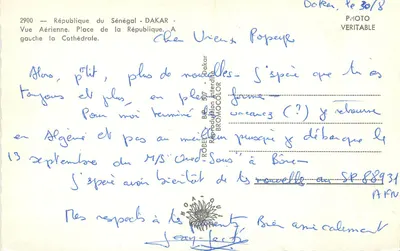 Dakar, le 30/8
2900 — République du Sénégal - DAKAR -
Vue Aérienne. Place de la République. A
gauche la Cathédrale.
PHOTO
VERITABLE
Cher Vieux Popeye
Alors, p'tit, plus de nouvelles. J'espère que tu es
toujours et plus, en pleine forme
Pour moi terminé vacances (?) je retourne
en Algérie et pas au meilleur puisque je débarque le
13 septembre du M/S à Bône
J'espère avoir bientôt de tes nouvelles au SP 88931
AFN
Mes respects à tes parents, Bien amicalement
BROMOCOLOR